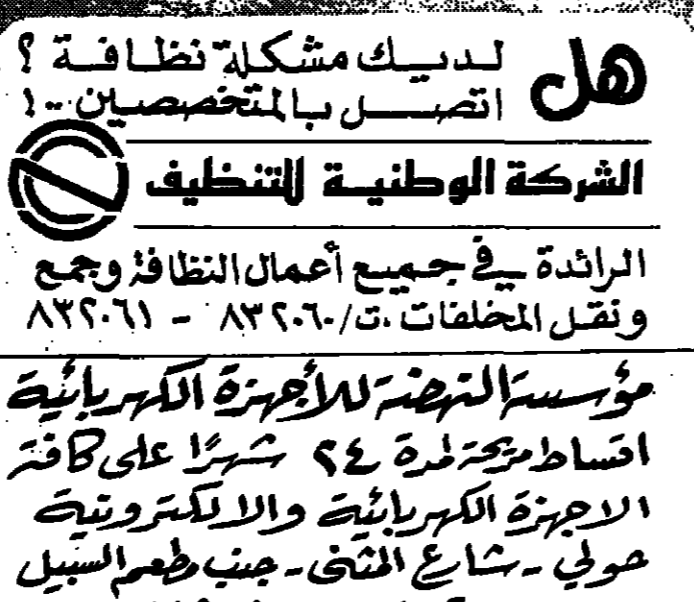 هل لديك مشكلة نظافة ؟
اتصل بالمتخصصين ..!
الشركة الوطنية للتنظيف
الرائدة في جميع أعمال النظافة وجمع
ونقل المخلفات .ت/٨٣٢٠٦٠ - ٨٣٢٠٦١
مؤسسة النهضة للأجهزة الكهربائية
اقساط مريحة لمدة ٢٤ شهرًا على كافة
الاجهزة الكهربائية والالكترونية
حولي - شارع المثنى - جنب مطعم السبيل